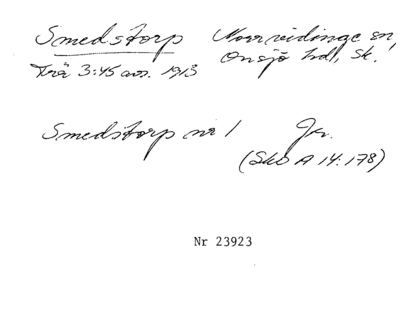 Smedstorp Norrvidinge sn,
Trä 3:45 avs. 1913 Onsjö hd, Sk.
Smedstorp nr 1 Jr.
(Skb A 14:178)
Nr 23923